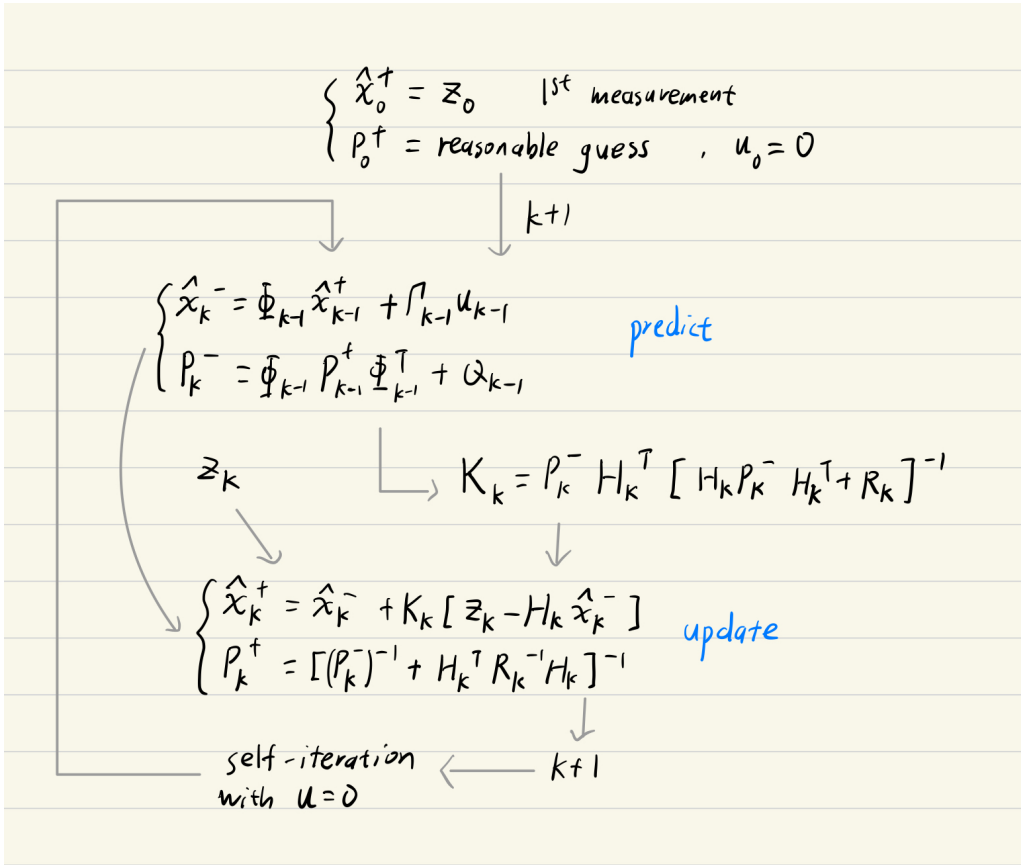 x̂₀⁺ = z₀ 1st measurement
P₀⁺ = reasonable guess , u₀ = 0
k+1
x̂ₖ⁻ = Φₖ₋₁ x̂ₖ₋₁⁺ + Γₖ₋₁ uₖ₋₁
predict
Pₖ⁻ = Φₖ₋₁ Pₖ₋₁⁺ Φₖ₋₁ᵀ + Qₖ₋₁
zₖ
Kₖ = Pₖ⁻ Hₖᵀ [ Hₖ Pₖ⁻ Hₖᵀ + Rₖ ]⁻¹
x̂ₖ⁺ = x̂ₖ⁻ + Kₖ [ zₖ − Hₖ x̂ₖ⁻ ]
update
Pₖ⁺ = [(Pₖ⁻)⁻¹ + Hₖᵀ Rₖ⁻¹ Hₖ ]⁻¹
self-iteration
with u=0
k+1